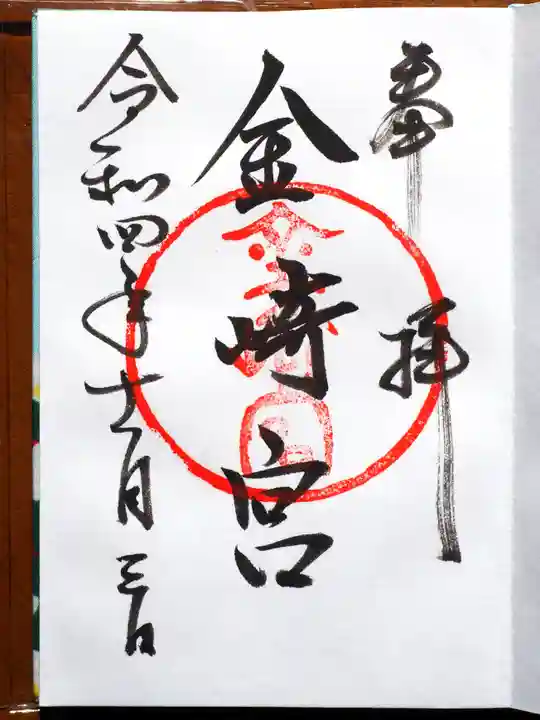 奉拝
金崎宮
令和四年十一月三日